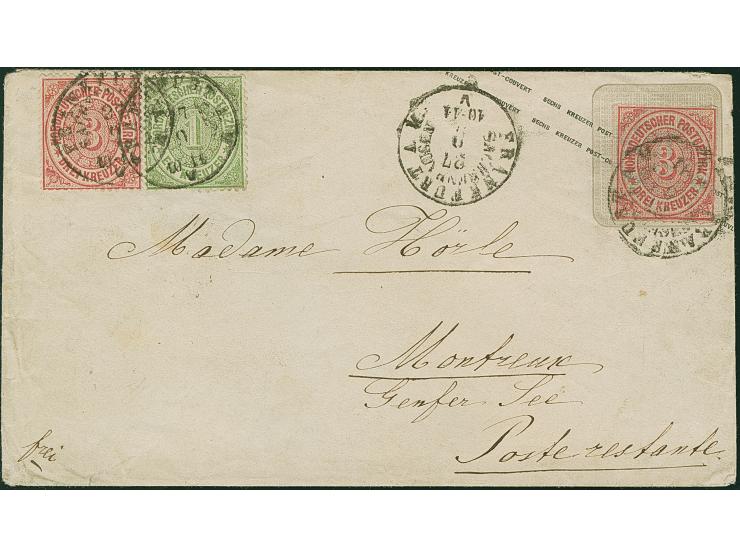 NORDDEUTSCHER POSTBEZIRK
3
DREI KREUZER
NORDDEUTSCHER POSTBEZIRK
1
POST-COUVERT SECHS KREUZER
SECHS KREUZER POST-
FRANKFURT A. M.
27
10-11
V
NORDDEUTSCHER POSTBEZIRK
3
DREI KREUZER
Madame Hörle
Montreux
Genfer See
Poste restante.
frei